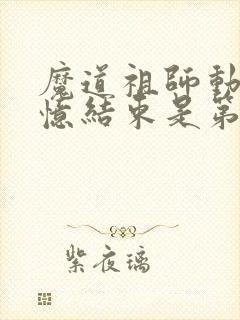 魔道祖師動
憶結束是第
紫夜璃